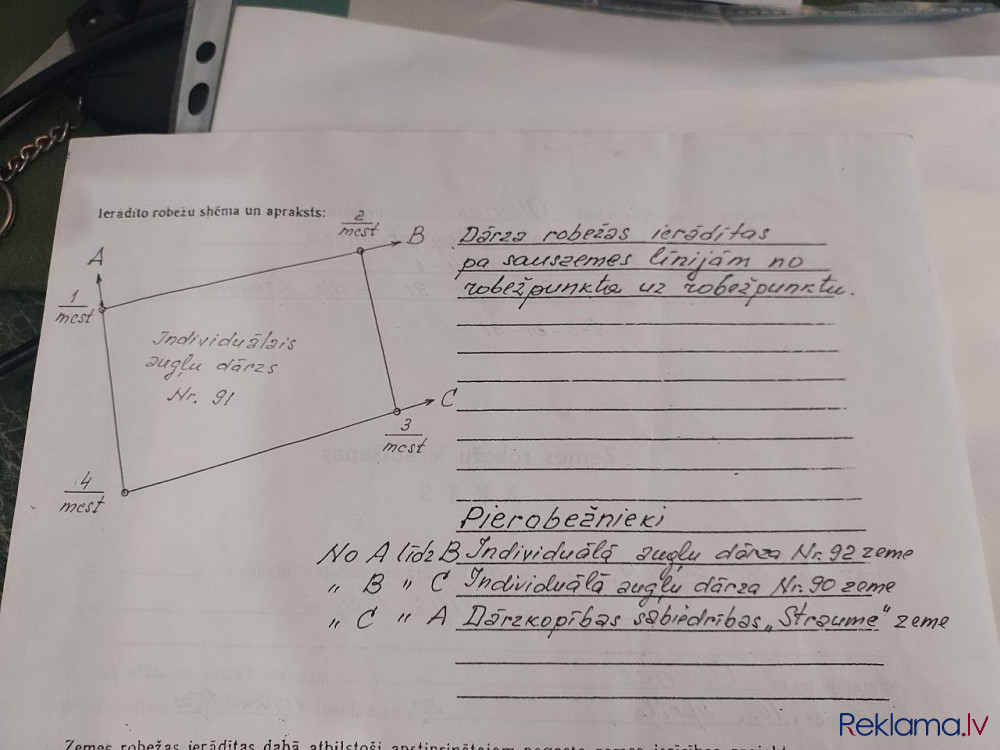 Ierādīto robežu shēma un apraksts:
A
1
mcst
2
mcst
B
Individuālais
augļu dārzs
Nr. 91
3
mcst
C
4
mcst
Dārza robežas ierādītas
pa sauszemes līnijām no
robežpunkta uz robežpunktu.
Pierobežnieki
No A līdz B Individuālā augļu dārza Nr. 92 zeme
„ B „ C Individuālā augļu dārza Nr. 90 zeme
„ C „ A Dārzkopības sabiedrības „Straume" zeme
Zemes robežas ierādītas dabā atbilstoši apstiprinātajam pagasta zemes ierīcības
Reklama.lv